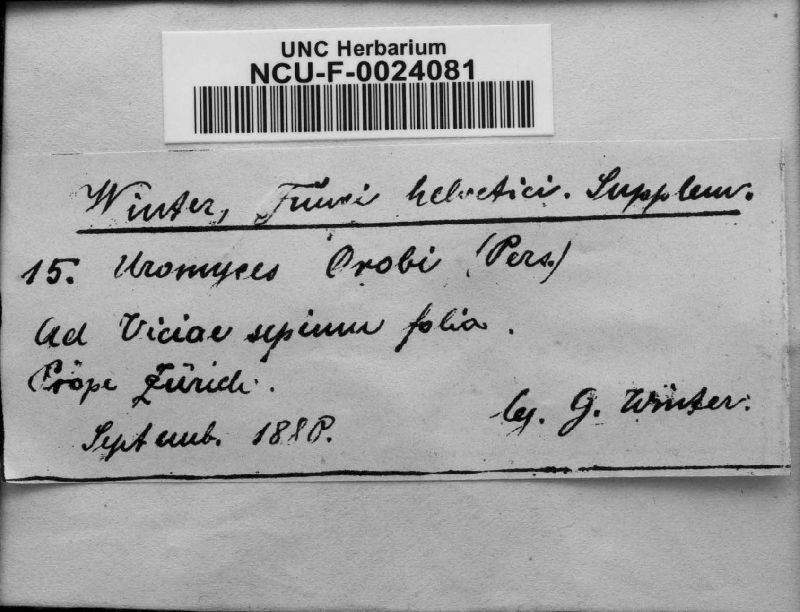 UNC Herbarium
NCU-F-0024081
Winter, Fungi helvetici. Supplem.
15. Uromyces Orobi (Pers.)
Ad Viciae sepium folia.
Prope Zürich.
Septemb. 1880.
leg. G. Winter.